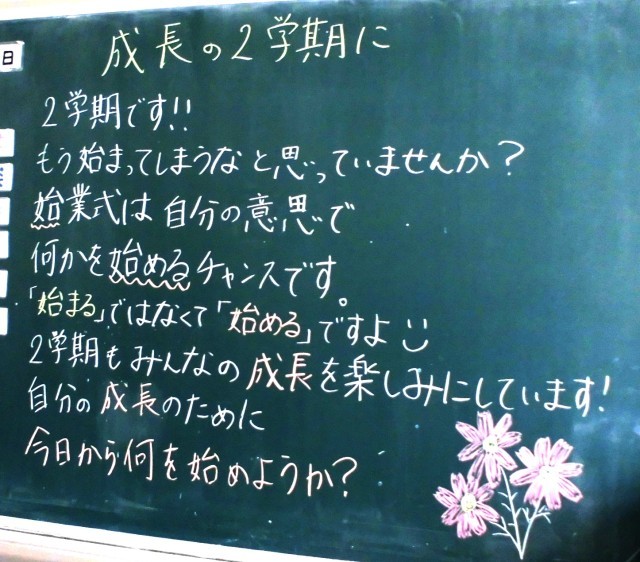 日
成長の2学期に
2学期です!!
もう始まってしまうなと思っていませんか?
始業式は自分の意思で
何かを始めるチャンスです。
「始まる」ではなくて「始める」ですよ
2学期もみんなの成長を楽しみにしています!
自分の成長のために
今日から何を始めようか?